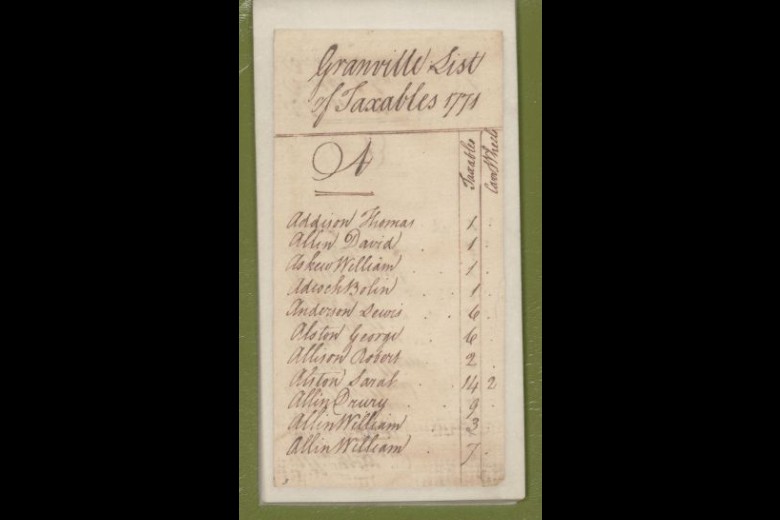 Granville List
of Taxables 1771
A
Taxables
Carr Wheels
Addison Thomas 1
Allin David 1
Askew William 1
Adcock Bolin 1
Anderson Lewis 6
Alston George 6
Allison Robert 2
Alston Sarah 14 2
Allin Drury 9
Allin William 3
Allin William 7